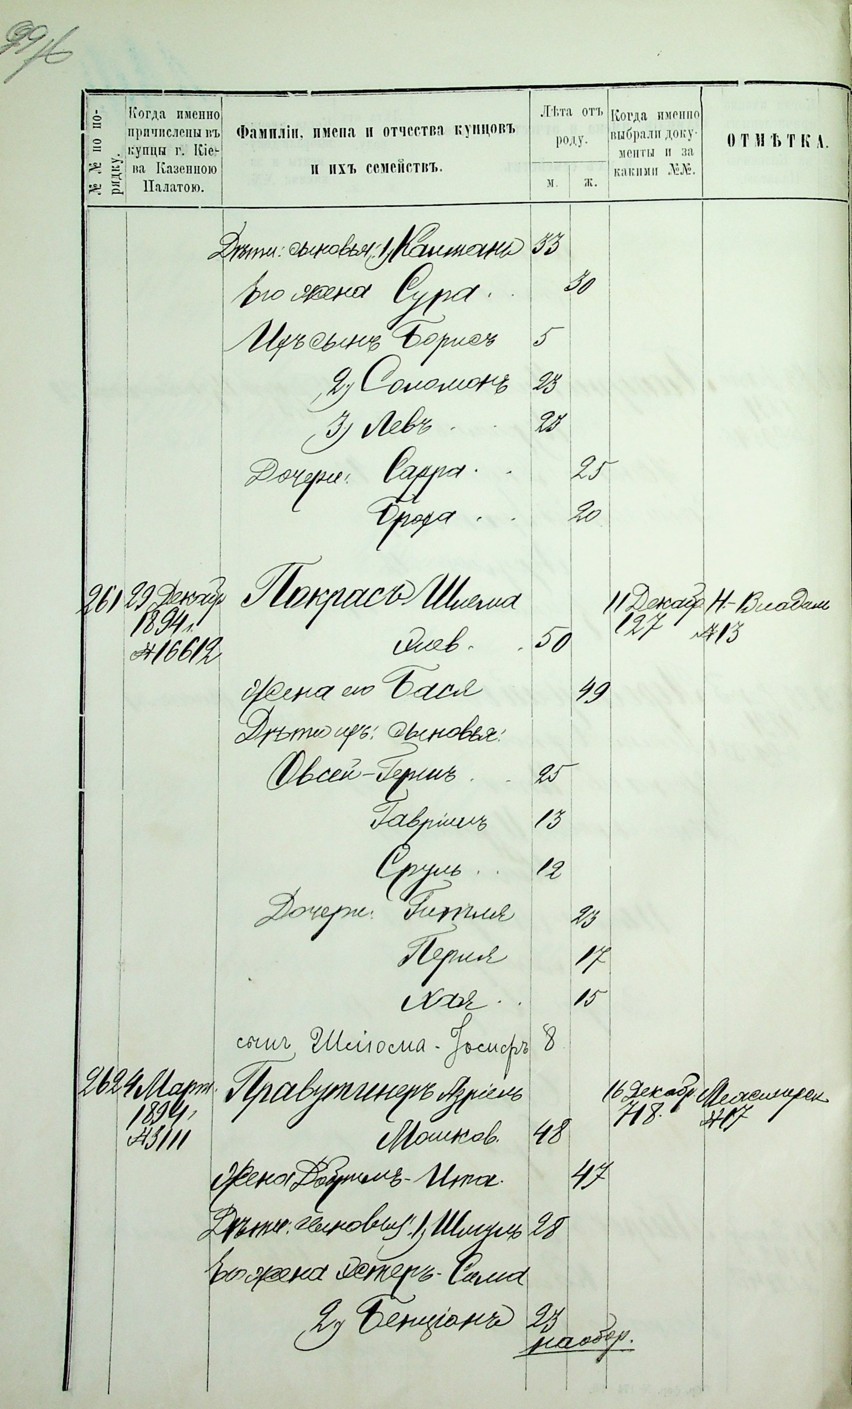 № № по порядку.
Когда именно причислены въ купцы г. Кіева Казенною Палатою.
Фамиліи, имена и отчества купцовъ и ихъ семействъ.
Лѣта отъ роду.
м.
ж.
Когда именно выбрали документы и за какими №№.
ОТМѢТКА.
Дѣти: сыновья: 1) Калманъ 33
Его жена Сура . . 30
Ихъ сынъ Борисъ 5
2) Соломонъ 23
3) Левъ . .
Дочери: Сарра . . 25
Броха . . 20
261 29 Декабр Покрасъ Шлема 11 Декабр
1894 г. 127 №13
№16612 . 50
Жена его Бася 49
Дѣти ихъ: сыновья:
Овсей-Гершъ . . 25
Гавріилъ 13
Сруль . . 12
Дочери: Гитля 23
Перля 17
Хая . . 15
сынъ Шліома-Іосифъ 8
262 4 Март. Правутинеръ Азріель 16 Декабр
1894 г. 718. №17
№3111 Мошков. 48
Жена - Ита. 47
Дѣти: сыновья: 1) Шмуль 28
Его жена Эстеръ-Сима
2) Бенціонъ 23
на обор.